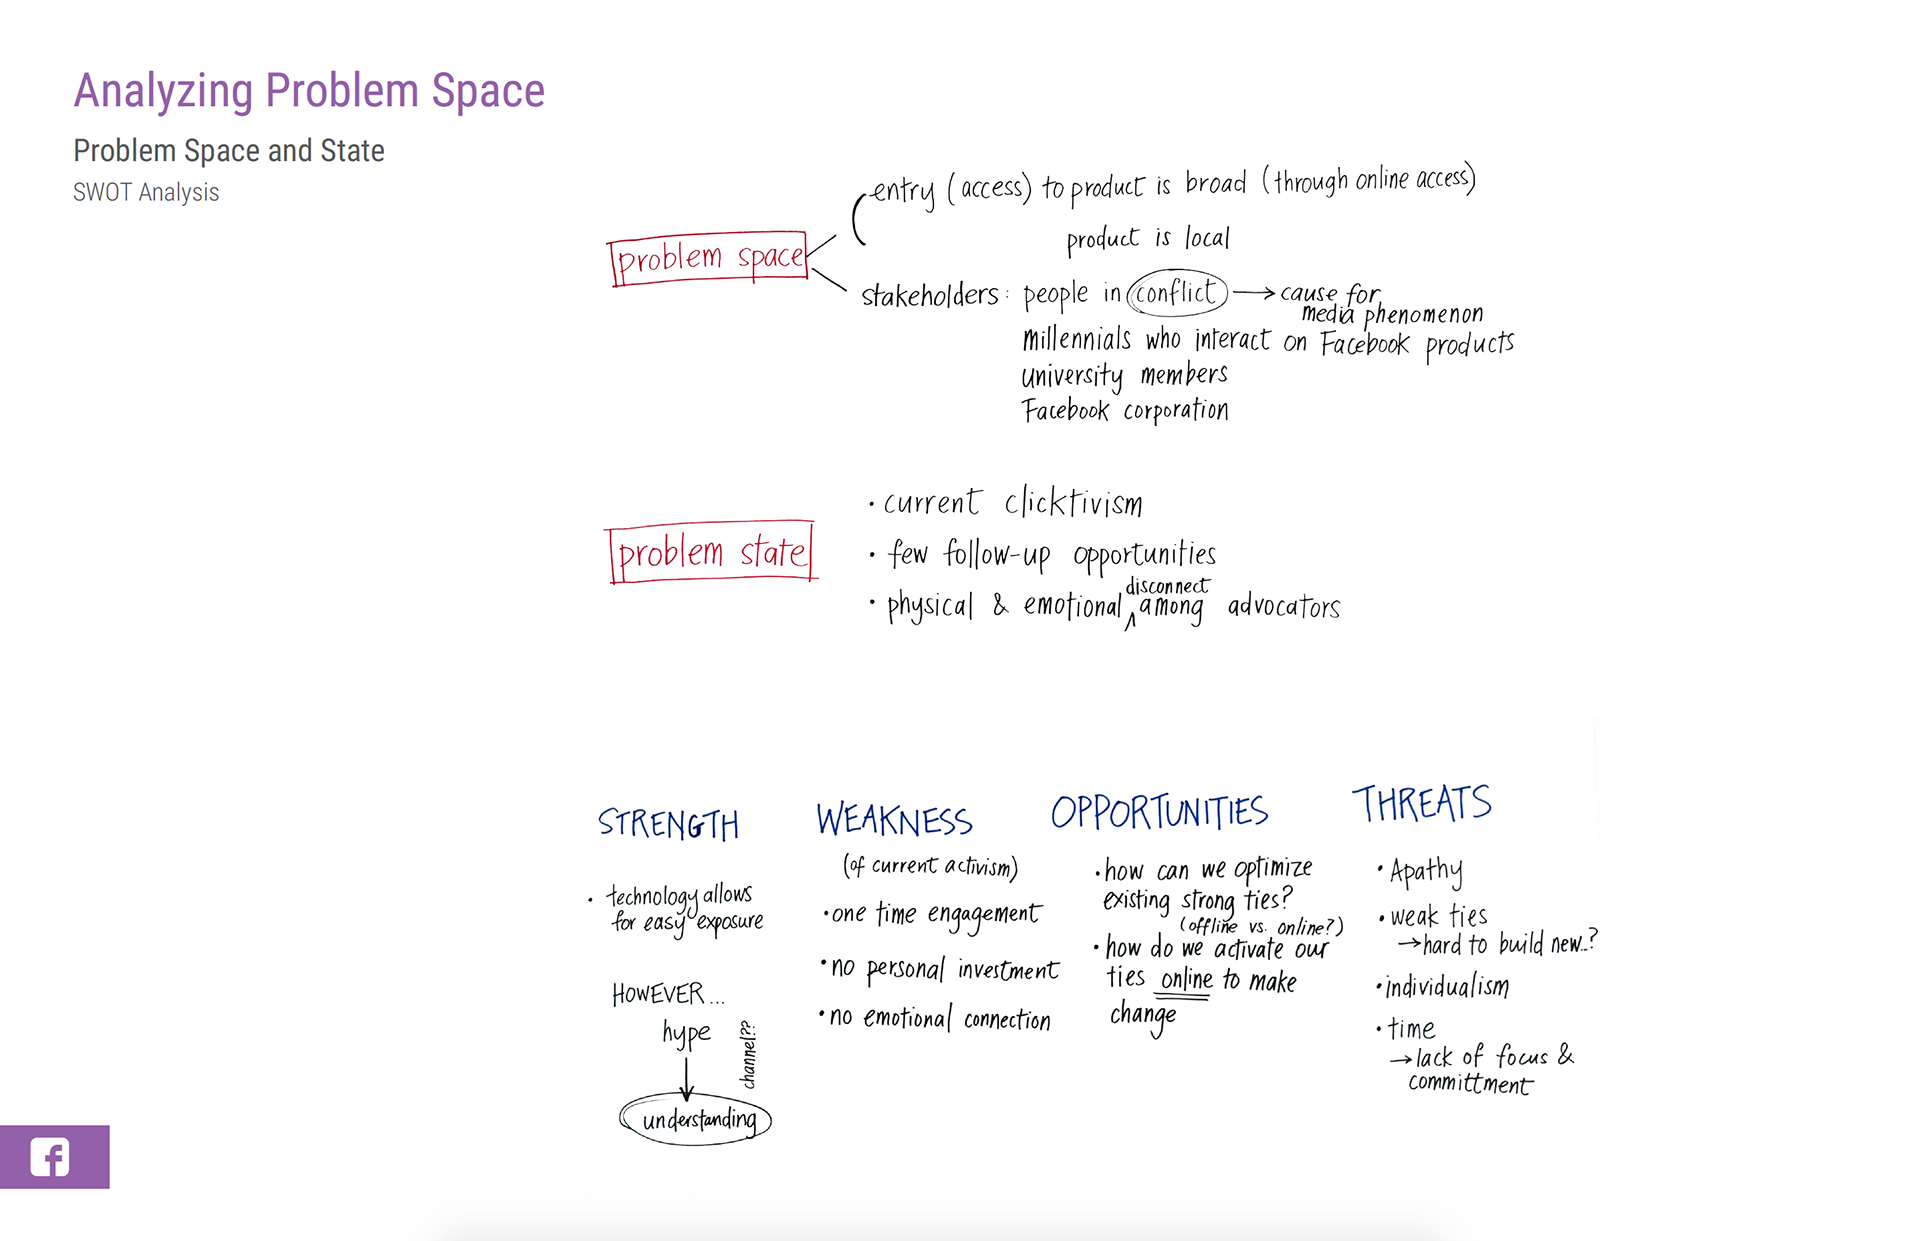 Analyzing Problem Space
Problem Space and State
SWOT Analysis
entry (access) to product is broad (through online access)
product is local
problem space
stakeholders: people in conflict → cause for
media phenomenon
millennials who interact on Facebook products
university members
Facebook corporation
problem state
• current clicktivism
• few follow-up opportunities
disconnect
• physical & emotional ^ among advocators
STRENGTH
• technology allows
for easy exposure
HOWEVER...
hype
channel??
understanding
WEAKNESS
(of current activism)
• one time engagement
• no personal investment
• no emotional connection
OPPORTUNITIES
• how can we optimize
existing strong ties?
(offline vs. online?)
• how do we activate our
ties online to make
change
THREATS
• Apathy
• weak ties
→ hard to build new..?
• individualism
• time
→ lack of focus &
committment
f